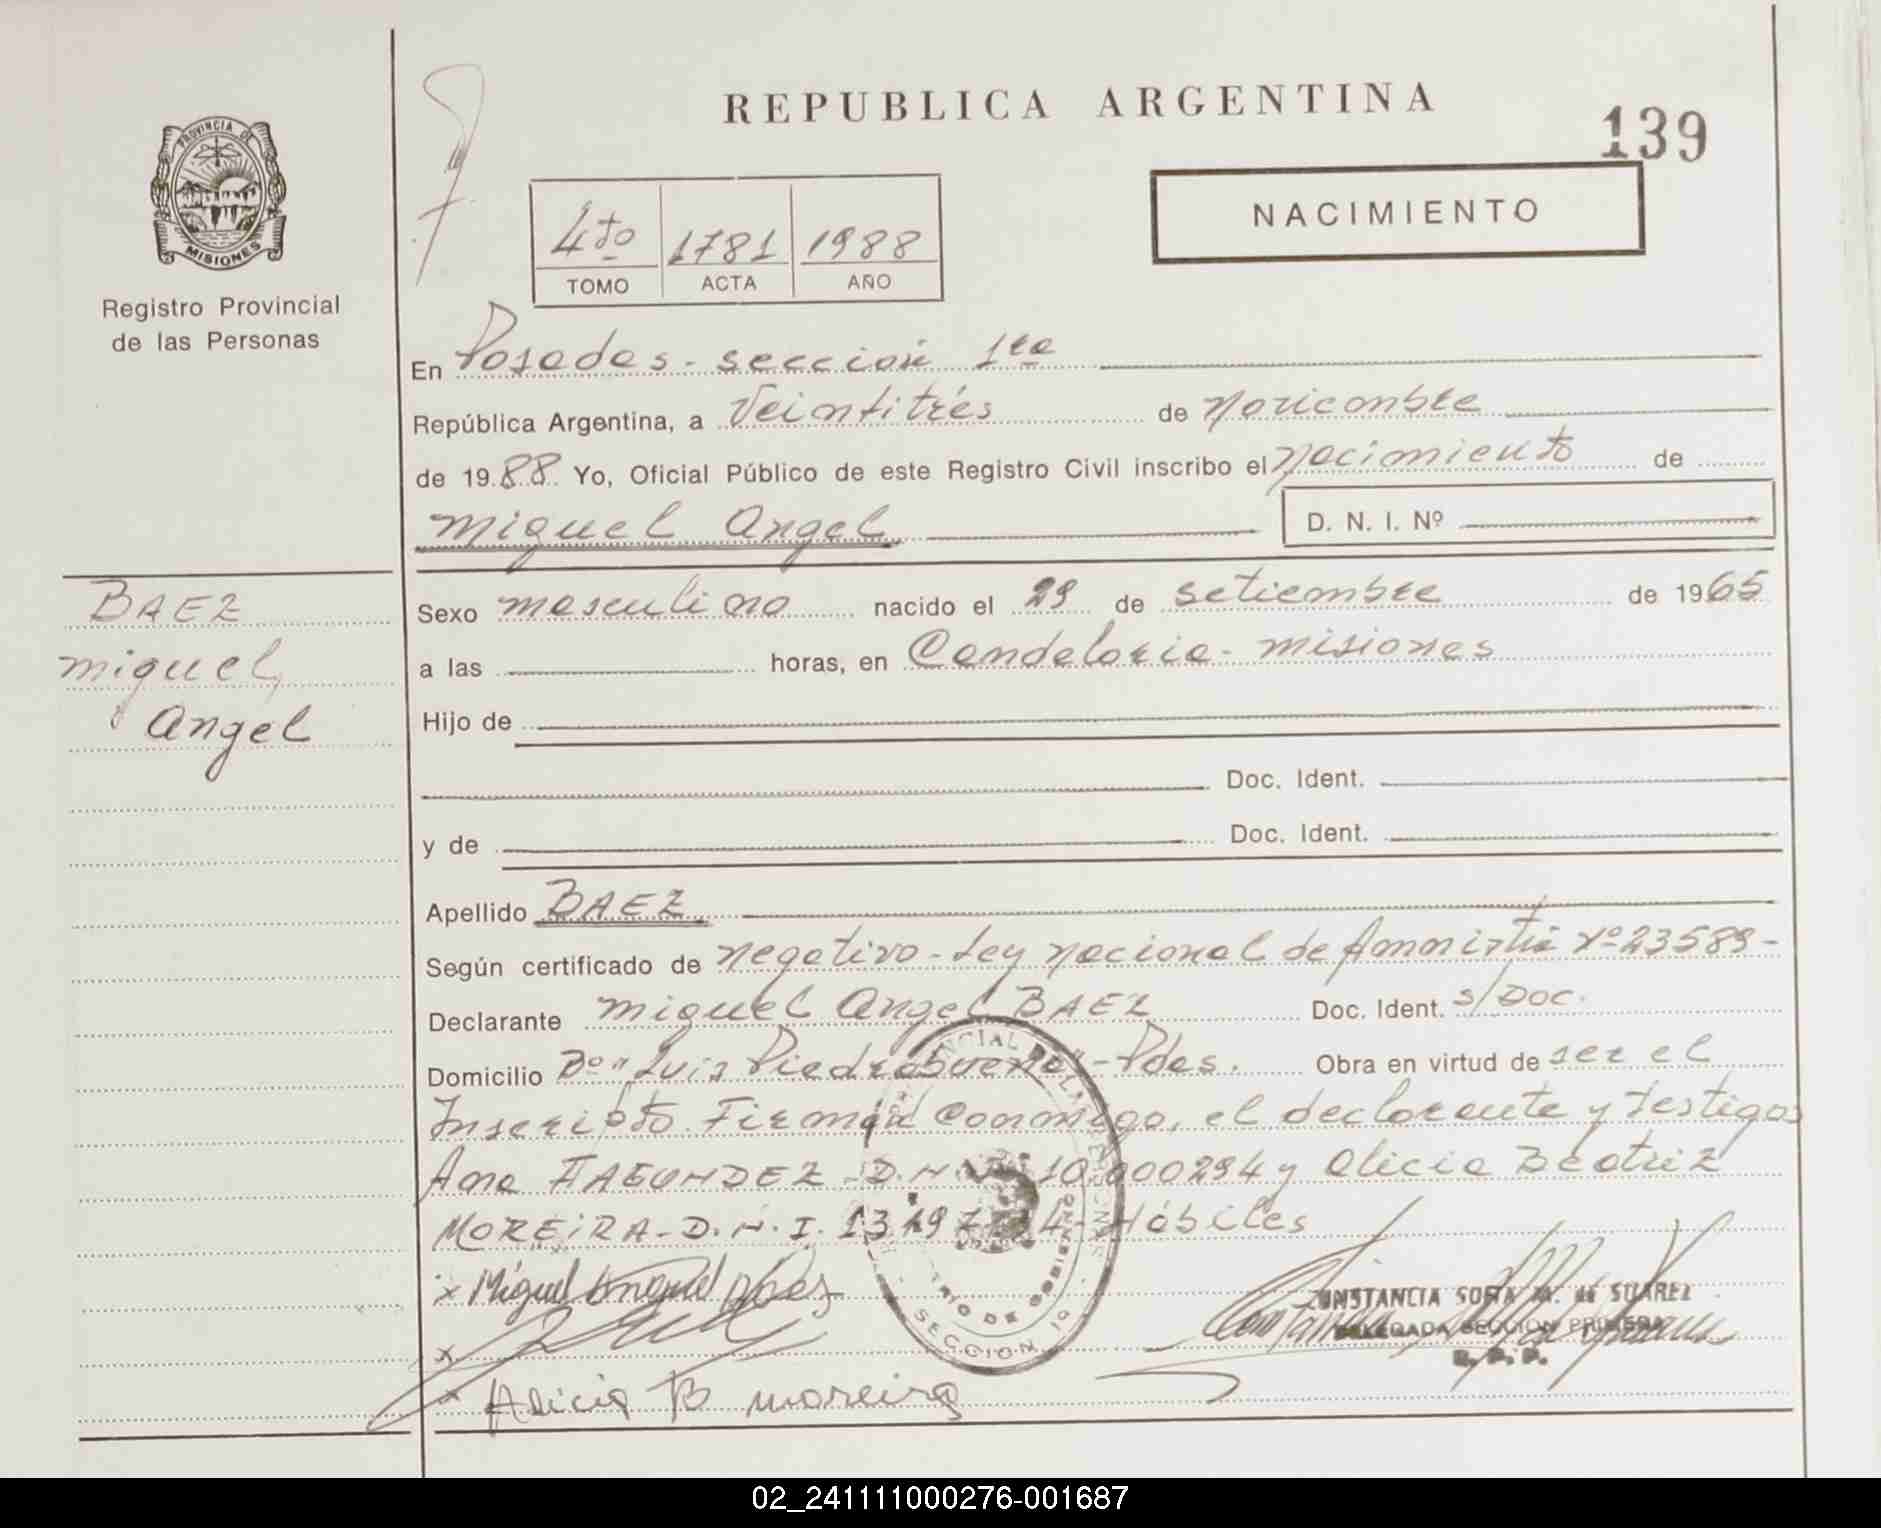 REPUBLICA ARGENTINA
139
PROVINCIA DE
MISIONES
Registro Provincial
de las Personas
NACIMIENTO
4to 1781 1988
TOMO ACTA AÑO
En Posadas - sección 1ra
República Argentina, a Veintitrés de noviembre
de 1988 Yo, Oficial Público de este Registro Civil inscribo el nacimiento de
Miguel Angel D. N. I. Nº
BAEZ
Miguel
Angel
Sexo masculino nacido el 29 de setiembre de 1965
a las horas, en Candelaria - misiones
Hijo de
Doc. Ident.
y de Doc. Ident.
Apellido BAEZ
Según certificado de negativo - Ley nacional de Ammistia Nº 23589 -
Declarante Miguel Angel BAEZ Doc. Ident. s/Doc.
Domicilio Bº "Luis Piedrabuena" - Pdas. Obra en virtud de ser el
Inscripto. Firman conmigo, el declarante y testigos
Ana FAGUNDEZ - D.N.I. 10.000294 y Alicia Beatriz
MOREIRA - D.N.I. 13 Hábiles
x Miguel Angel Baez
CONSTANCIA SOFIA M. de SUAREZ
DELEGADA SECCION PRIMERA
R. P. P.
x
x Alicia B moreira
SECCION 1º
02_241111000276-001687